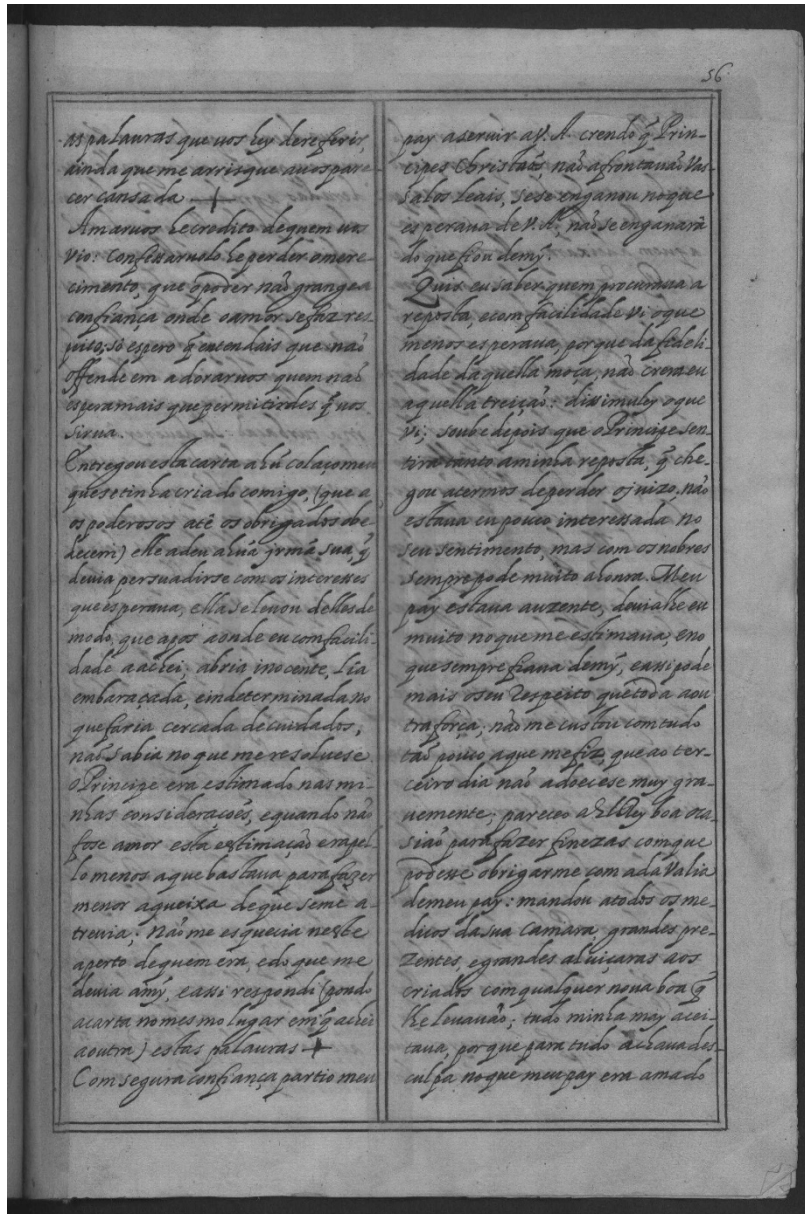 56
as palauras que uos hey dereferir,
ainda que me arrisque auospare-
cer cansada +
Amaruos he credito dequem uos
vio: confessaruolo he perder omere-
cimento, que o poder não grangea
confiança onde o amor se faz res
peito; só espero q̃ entendais que não
offende em adoraruos quem não
espera mais que permitirdes q̃ uos
sirua.
Entregou esta carta a hũ colaço meu
que se tinha criado comigo, (que a
os poderosos atê os obrigados obe
decem) elle a deu a hũa jrmã sua, q̃
deuia persuadirse com os interesses
que esperaua, ella se leuou delles de
modo, que a pos aonde eu com facili-
dade a achei; abria inocente, lia
embaraçada, e indeterminada no
que faria cercada de cuidados,
não sabia no que me resoluese
o Principe era estimado nas mi-
nhas considerações, e quando não
fose amor esta estimação era pel-
lo menos a que bastaua para fazer
menor a queixa de que se me a-
treuia; Não me esquecia neste
aperto de quem era, e do que me
deuia a mỹ, e assi respondi (pondo
a carta no mesmo lugar em q̃ achei
a outra) estas palauras +
Com segura confiança partio meu
pay a seruir a V. A. crendo q̃ Prin-
cipes Christaõs não afrontauão Vas-
salos Leais, se se enganou no que
esperaua de V. A. não se enganarâ
do que fiou de mỹ.
Quis eu saber quem procuraua a
reposta, e com facilidade vi o que
menos esperaua, porque da fedeli
dade daquella moça, não crera eu
aquella treição: dissimuley o que
vi; soube depois que o Principe sen
tira tanto a minha reposta, q̃ che-
gou a termos de perder o juizo, não
estaua eu pouco interessada no
seu sentimento, mas com os nobres
sempre pode muito a honra. Meu
pay estaua auzente, deuialhe eu
muito no que me estimaua, e no
que sempre fiaua de mỹ, e assi pode
mais o seu respeito que toda a ou
tra força; não me custou com tudo
tão pouco a que me fiz, que ao ter-
ceiro dia não adoecese muy gra-
uemente; pareceo a ElRey boa oca-
sião para fazer finezas com que
podesse obrigarme com a da Valia
de meu pay: mandou a todos os me-
dicos da sua camara, grandes pre-
zentes, e grandes aluiçaras aos
criados com qualquer noua boa q̃
lhe leuauão; tudo minha may acei-
taua, porque para tudo achaua des-
culpa no que meu pay era amado